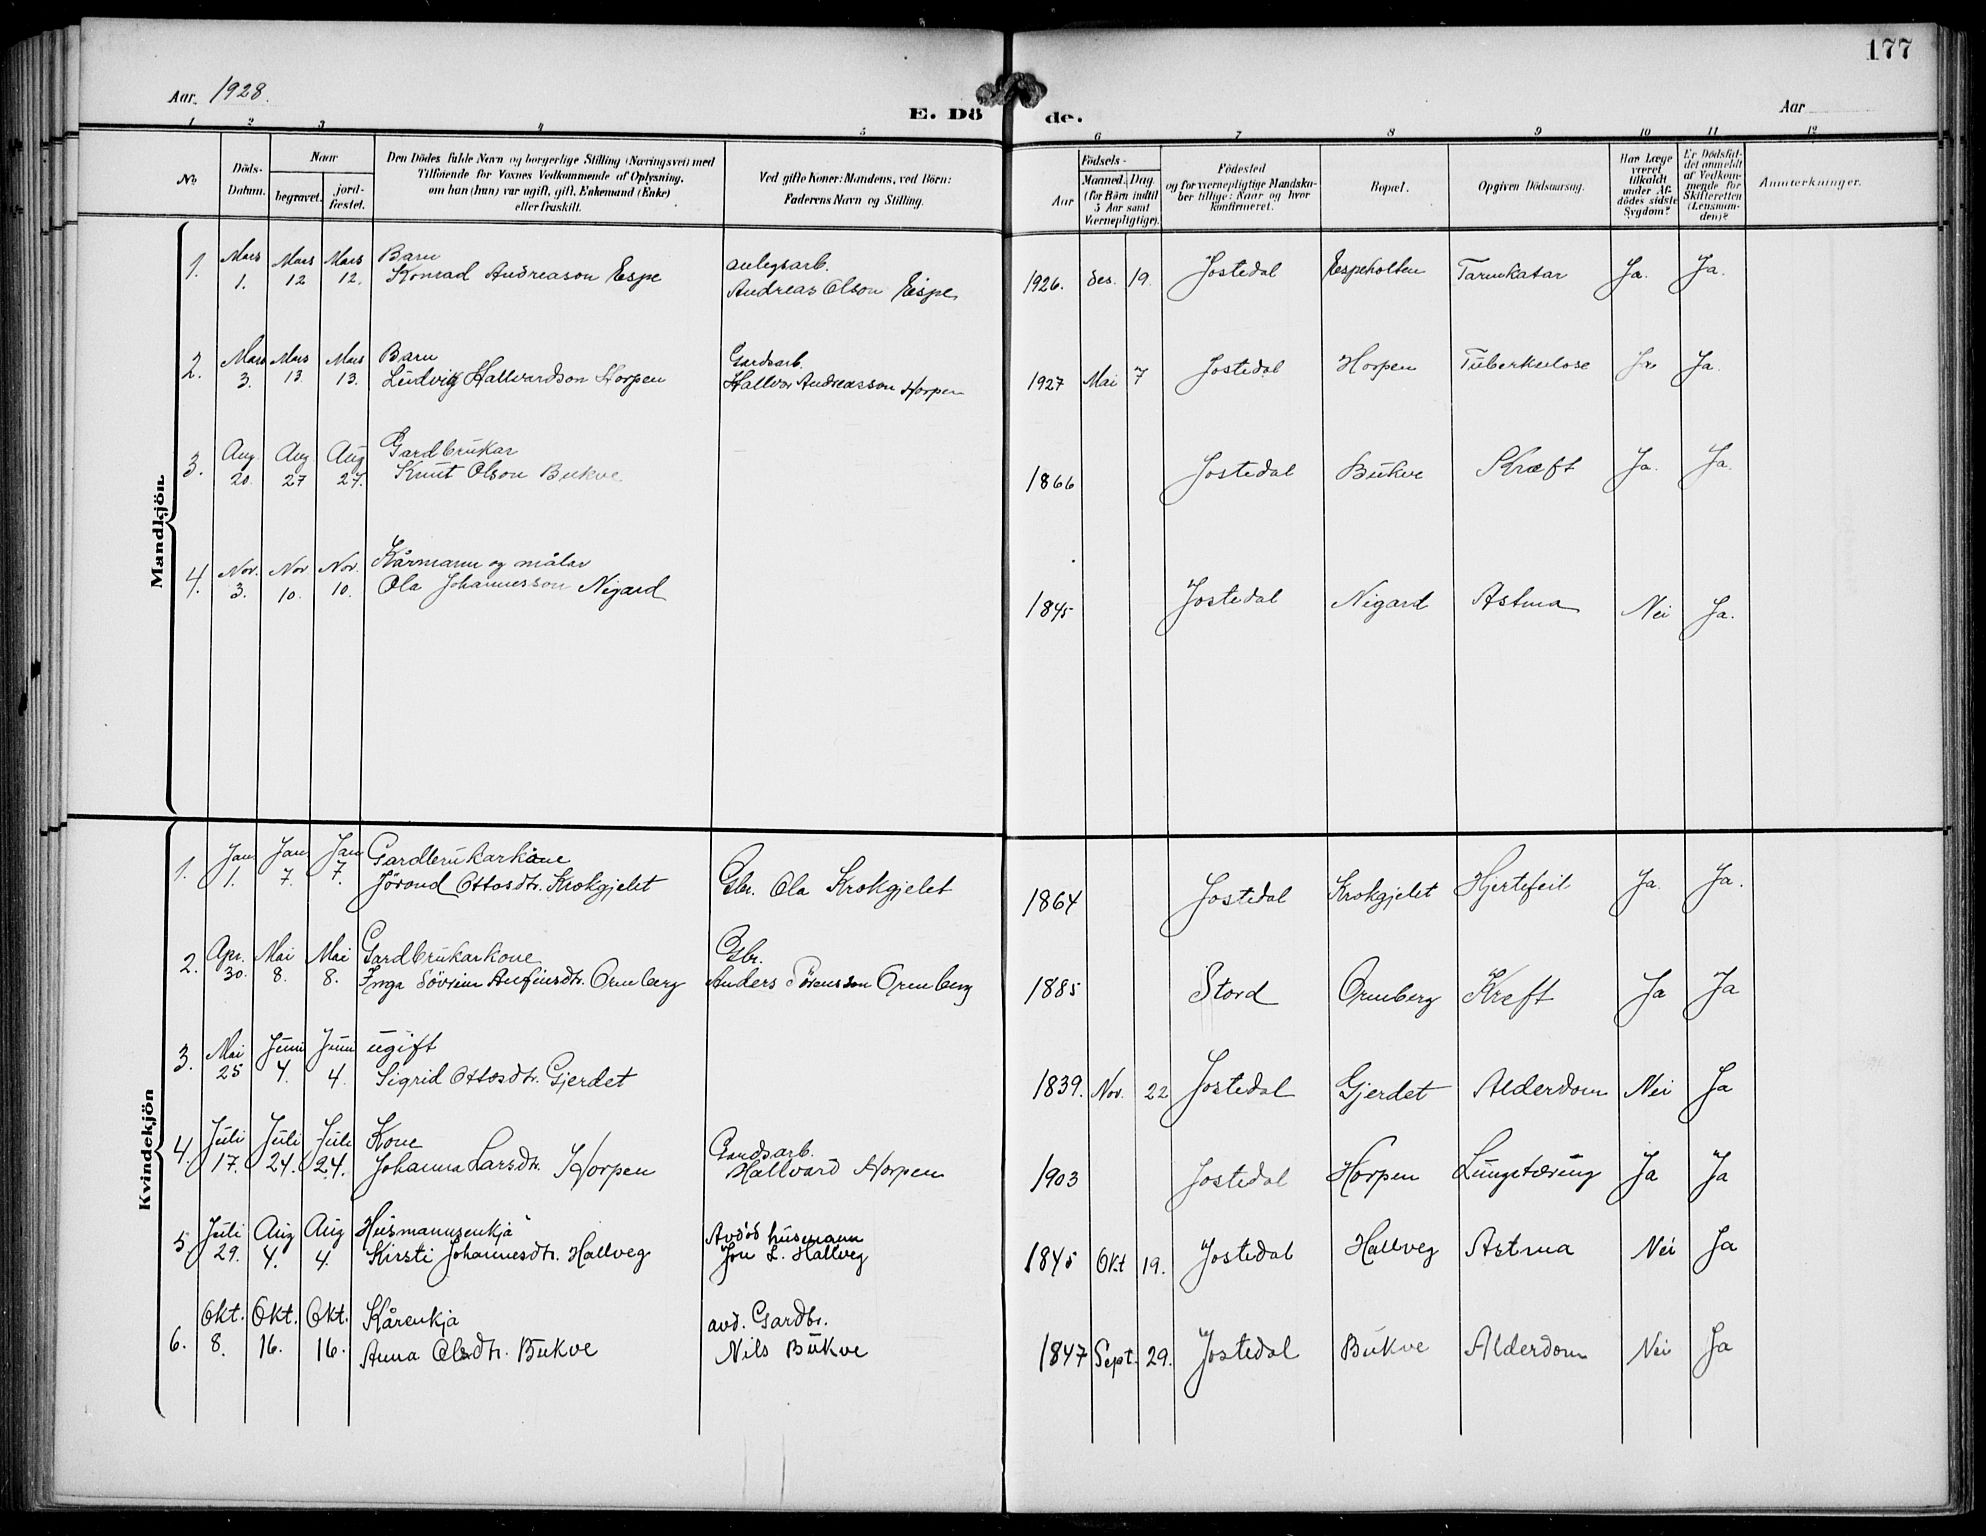 177
Aar 1928.
Aar
E. Dö de.
1 2 3 4 5 6 7 8 9 10 11 12
No.
Döds-
Datum.
Naar
begravet.
jord-
fæstet.
Den Dödes fulde Navn og borgerlige Stilling (Næringsvei) med
Tilföiende for Voxnes Vedkommende af Oplysning,
om han (hun) var ugift, gift, Enkemand (Enke)
eller fraskilt.
Ved gifte Koner: Mandens, ved Börn:
Faderens Navn og Stilling.
Födsels-
Aar
Maaned. Dag
(for Börn indtil
5 Aar samt
Værnepligtige).
Födested
og for værnepligtige Mandska-
ber tillige: Naar og hvor
konfirmeret.
Bopæl.
Opgiven Dödsaarsag.
Har Læge
været
tilkaldt
under Af-
dödes sidste
Sygdom?
Er Dödsfal-
det anmeldt
af Vedkom-
mende for
Skifteretten
(Lensman-
den)?
Anmerkninger.
Mandkjön.
1. Mars 1. Mars 12 Mars 12. Barn
Konrad Andreason Espe
anlegsarb.
Andreas Olson Espe
1926. Des. 19. Jostedal Espeholten Tarmkatar Ja. Ja.
2. Mars 3. Mars 13 Mars 13. Barn
Ludvig Hallvardson Horpen
Gardsarb.
Hallvar Andreasson Horpen
1927 Mai 7 Jostedal Horpen Tuberkulose Ja Ja.
3. Aug. 20. Aug 27 Aug 27. Gardbrukar
Knut Olson Bukve
1866 Jostedal Bukve Kræft Ja. Ja.
4. Nov. 3. Nov 10. Nov. 10. Kårmann og målar
Ola Johannesson Nigard
1845 Jostedal Nigard Astma Nei Ja.
Kvindekjön
1. Jan 1. Jan 7. Jan 7. Gardbrukarkone
Jörand Ottosdtr. Krokgjelet
Gbr. Ola Krokgjelet
1864 Jostedal Krokgjelet Hjertefeil Ja Ja.
2. Apr. 30. Mai 8. Mai 8. Gardbrukarkone
Inga Anfinsdtr. Ormberg
Gbr.
Anders Ormberg
1885 Stord Ormberg Kreft Ja Ja
3. Mai 25 Juni 4. Juni 4. ugift
Sigrid Ottosdtr. Gjerdet
1839. Nov. 22 Jostedal Gjerdet Alderdom Nei Ja
4. Juli 17. Juli 24. Juli 24. Kone
Johanna Larsdtr. Horpen
Gardsarb.
Hallvard Horpen
1903 Jostedal Horpen Lungetæring Ja Ja
5 Juli 29. Aug 4. Aug 4. Husmannsenkja
Kirsti Johannesdtr. Hallveg
Avdöd husmann
Jon L. Hallveg
1845 Okt 19. Jostedal Hallveg Astma Nei Ja
6. Okt. 8. Okt. 16. Okt. 16. Kårenkja
Anna Olsdtr. Bukve
avd. Gardbr.
Nils Bukve
1847 Sept. 29. Jostedal Bukve Alderdom Nei Ja